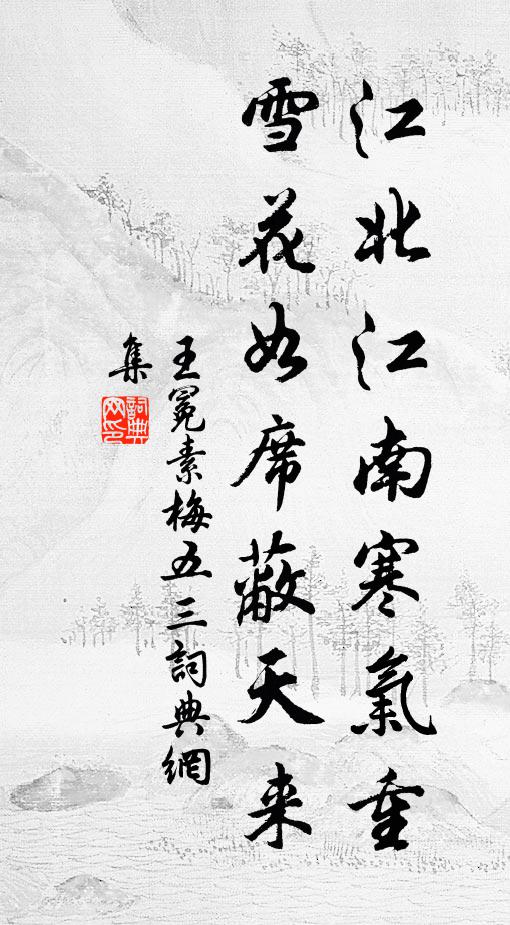 江北江南寒氣重
雪花如席蔽天来
王冕素梅五三詞典網
集
詞典
网印